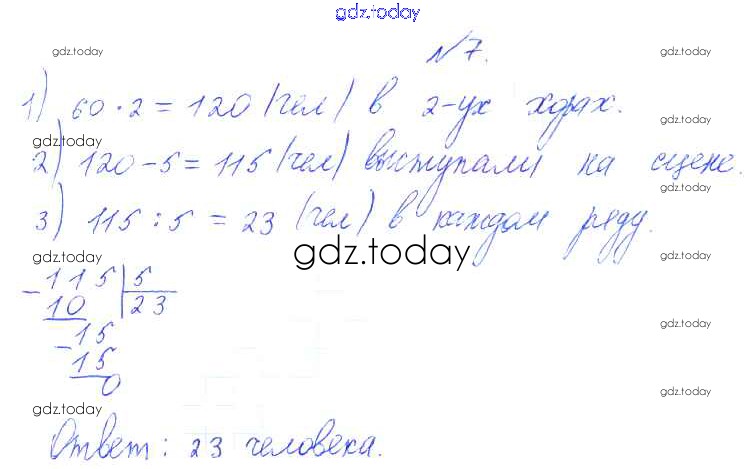 gdz.today
gdz.today
№7.
gdz.today
1) 60 · 2 = 120 (чел) в 2-ух хорах.
gdz.today
gdz.today
2) 120 - 5 = 115 (чел) выступали на сцене.
gdz.today
3) 115 : 5 = 23 (чел) в каждом ряду.
gdz.today
gdz.today
gdz.today
- 115 | 5
10 | 23
gdz.today
- 15
15
0
gdz.today
gdz.today
Ответ: 23 человека.
gdz.today